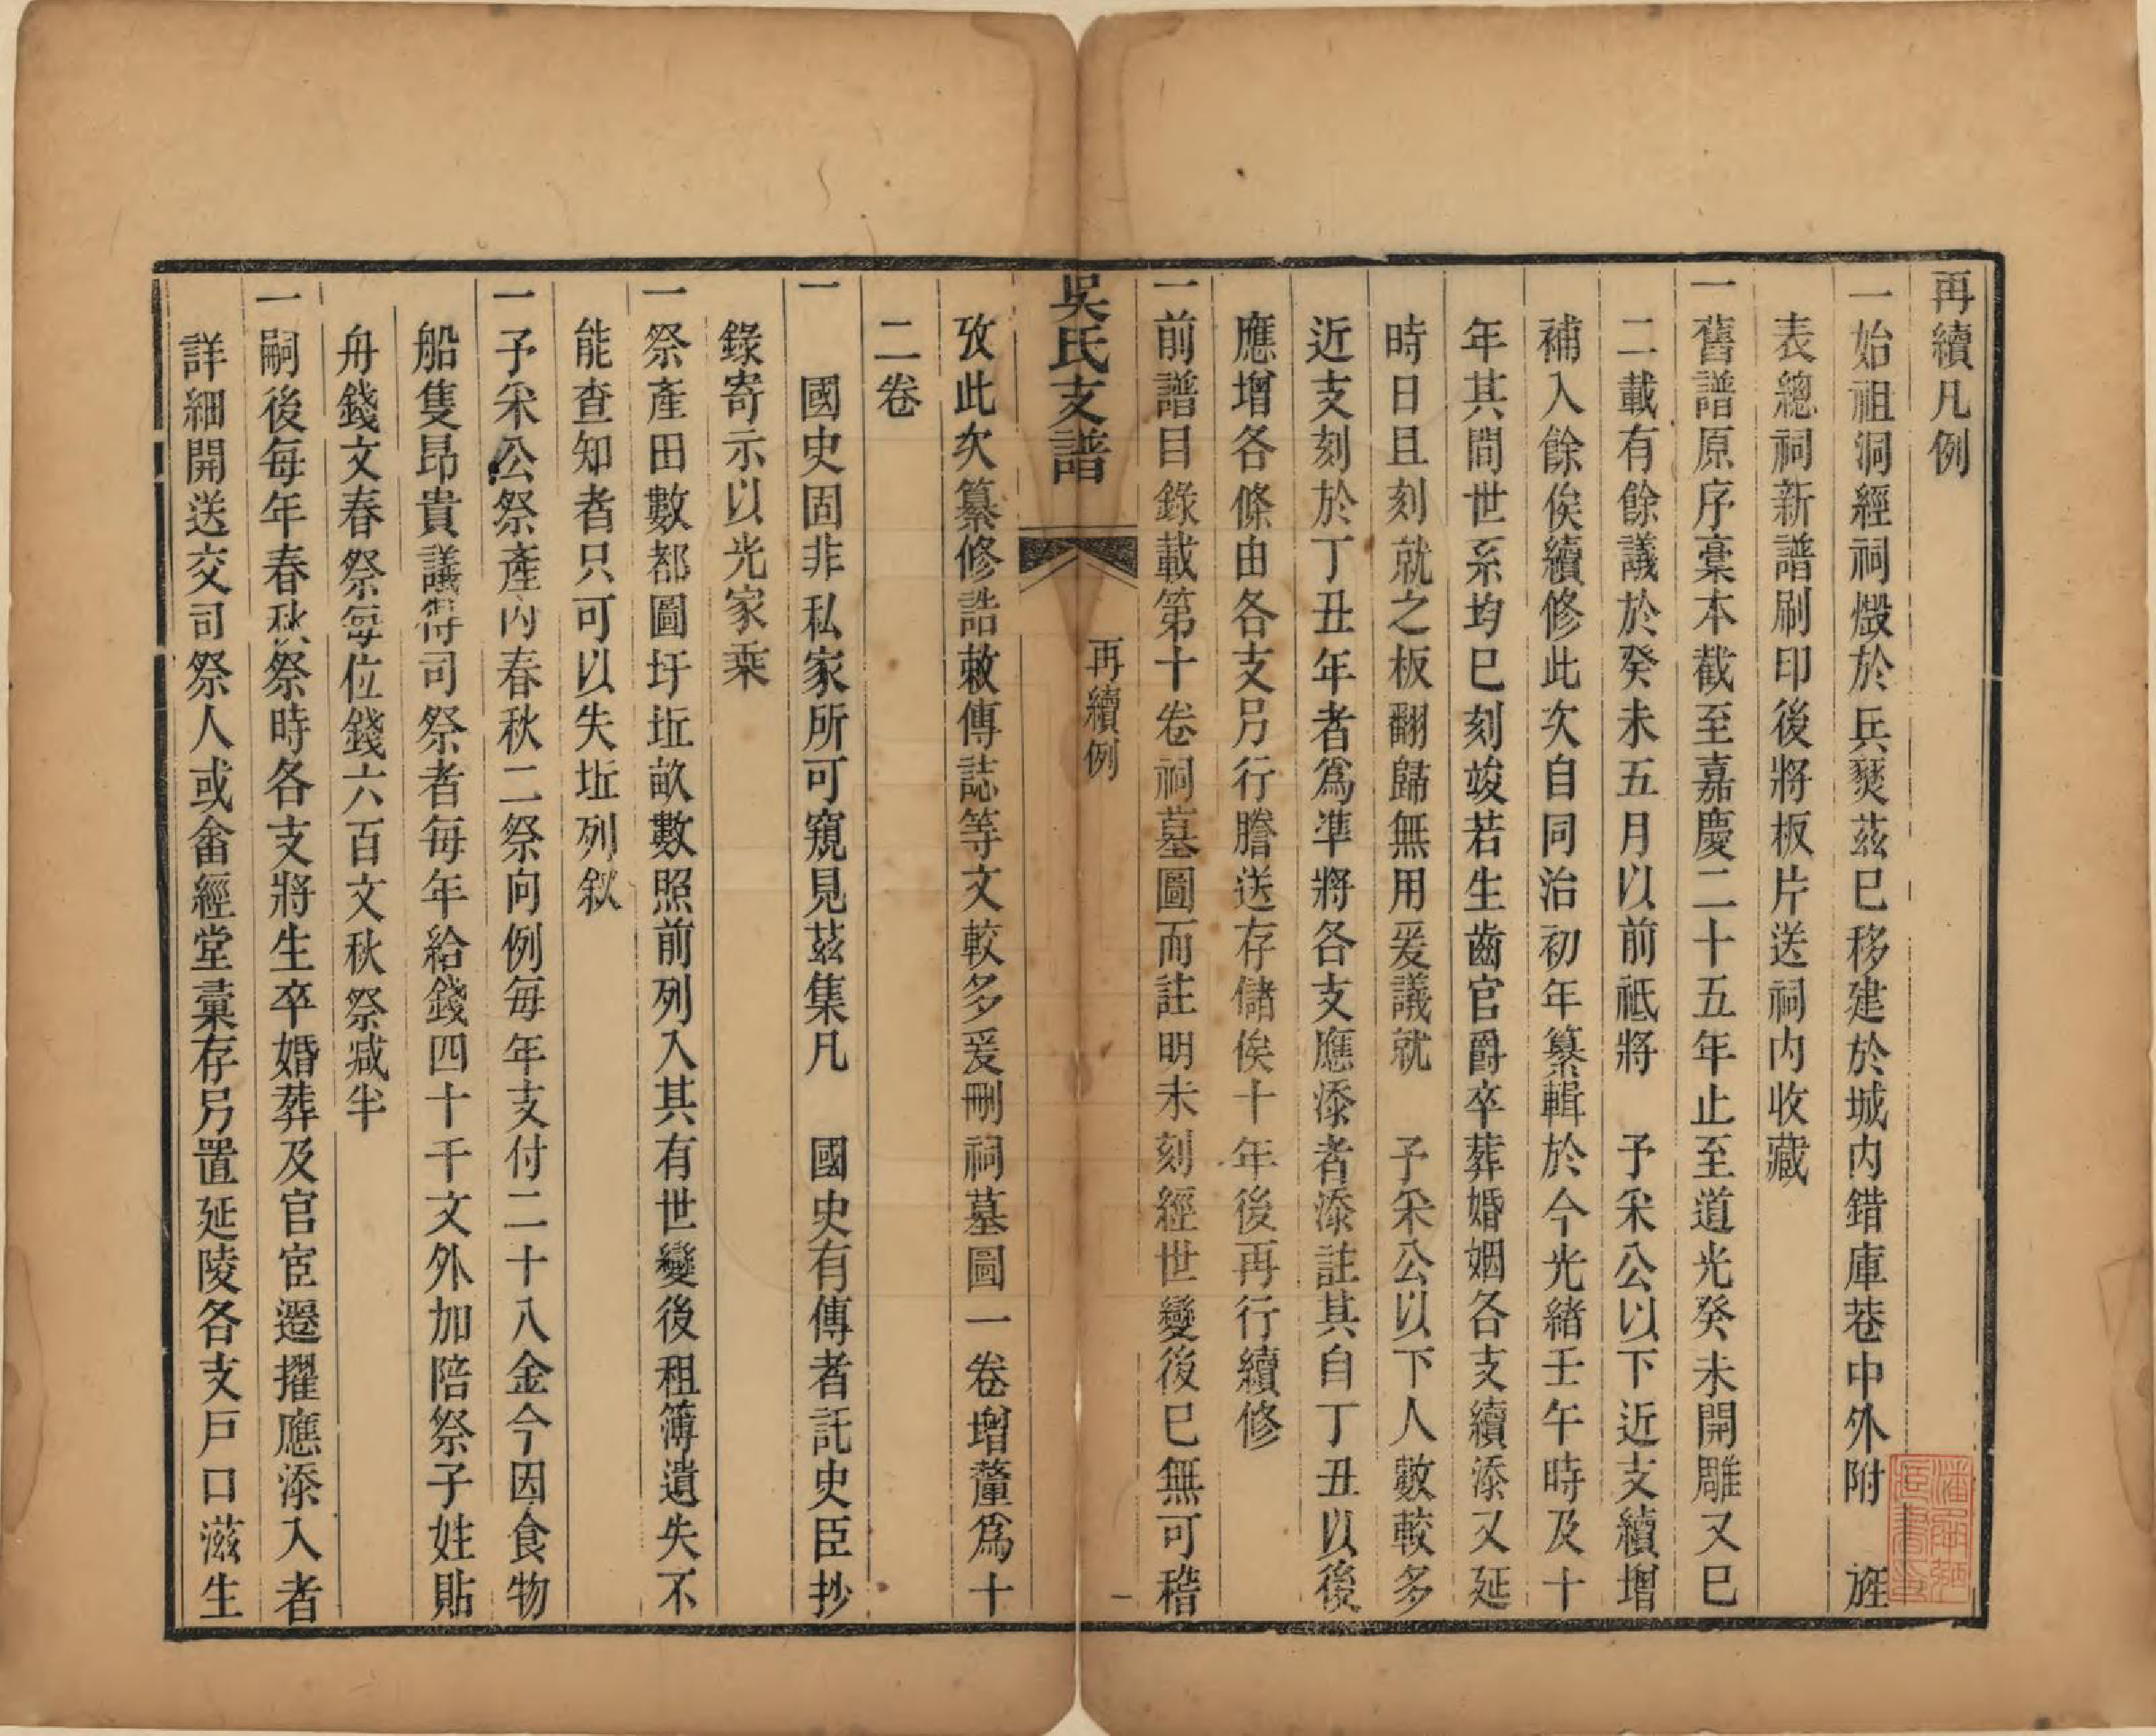 再續凡例
一始祖洞經祠燬於兵燹茲已移建於城內錯庫巷中外附　旌
表總祠新譜刷印後將板片送祠內收藏
一舊譜原序稾本截至嘉慶二十五年止至道光癸未開雕又已
二載有餘議於癸未五月以前祗將　予釆公以下近支續增
補入餘俟續修此次自同治初年纂輯於今光緒壬午時及十
年其間世系均已刻竣若生齒官爵卒葬婚姻各支續添又延
時日且刻就之板翻歸無用爰議就　予釆公以下人數較多
近支刻於丁丑年者爲準將各支應添者添註其自丁丑以後
應增各條由各支另行謄送存儲俟十年後再行續修
一前譜目錄載第十卷祠墓圖而註明未刻經世變後已無可稽
吳氏支譜
再續例
一
攷此次纂修誥敕傳誌等文較多爰刪祠墓圖一卷增釐爲十
二卷
一　國史固非私家所可窺見茲集凡　國史有傳者託史臣抄
錄寄示以光家乘
一祭產田數都圖圩坵畝數照前列入其有世變後租簿遺失不
能查知者只可以失坵列叙
一予釆公祭產內春秋二祭向例每年支付二十八金今因食物
船隻昂貴議得司祭者每年給錢四十千文外加陪祭子姓貼
舟錢文春祭每位錢六百文秋祭減半
一嗣後每年春秋祭時各支將生卒婚葬及官宦遷擢應添入者
詳細開送交司祭人或畬經堂彙存另置延陵各支戶口滋生